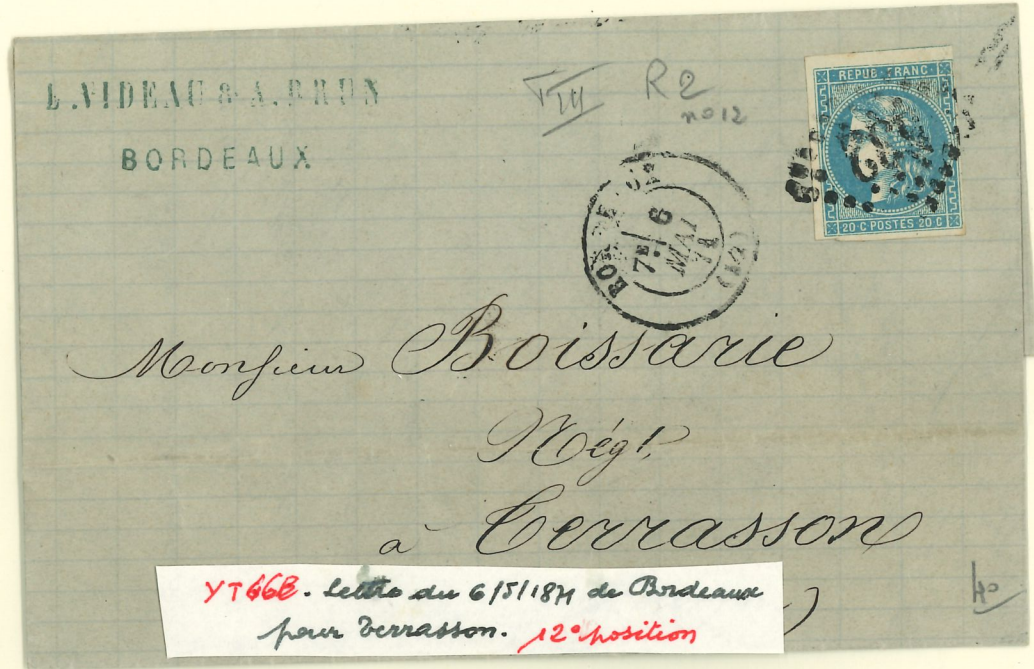 L. VIDEAU & A. BRUN
BORDEAUX
TIII R2
no 12
REPUB. FRANC.
20 C POSTES 20 C
BORDEAUX
7E 6
MAI
71
Monsieur Boissarie
Négt.
à Terrasson
YT46B. lettre du 6/5/1871 de Bordeaux
pour Terrasson. 12e position